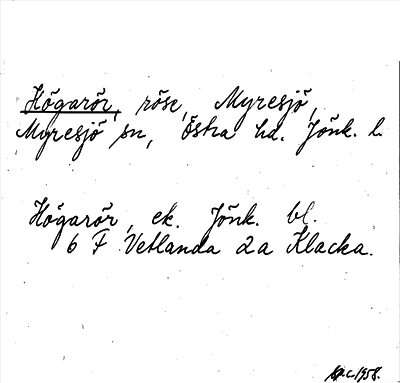 Högarör, röse, Myresjö,
Myresjö sn, Östra hd. Jönk. l.
Högarör, ek. Jönk. bl.
6 F Vetlanda 2a Klacka.
1958.